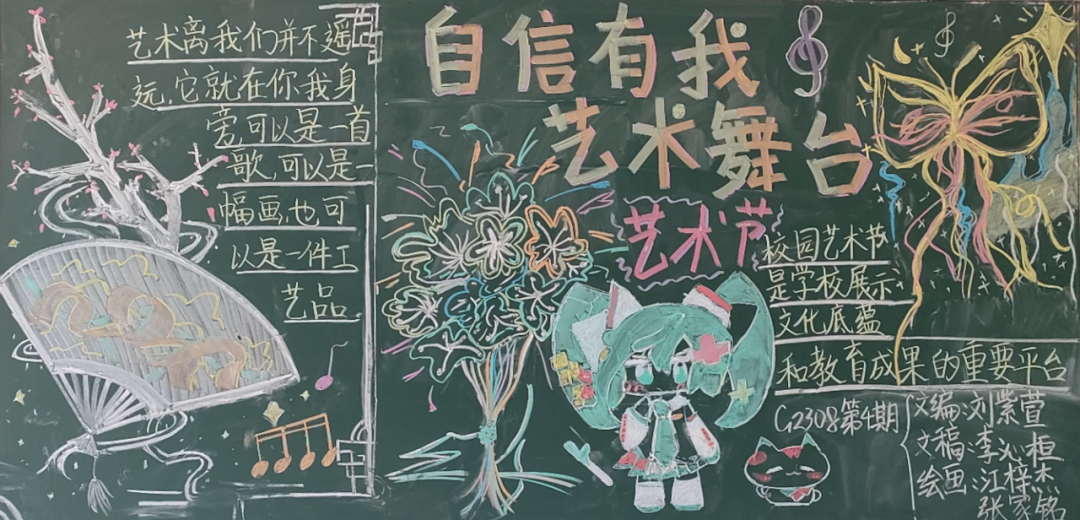 艺术离我们并不遥
远,它就在你我身
旁,可以是一首
歌,可以是一
幅画,也可
以是一件工
艺品
自信有我
艺术舞台
艺术节
校园艺术节
是学校展示
文化底蕴
和教育成果的重要平台
G2308第4期
文编:刘紫萱
文稿:李沁桓
绘画:江梓杰
张家铭